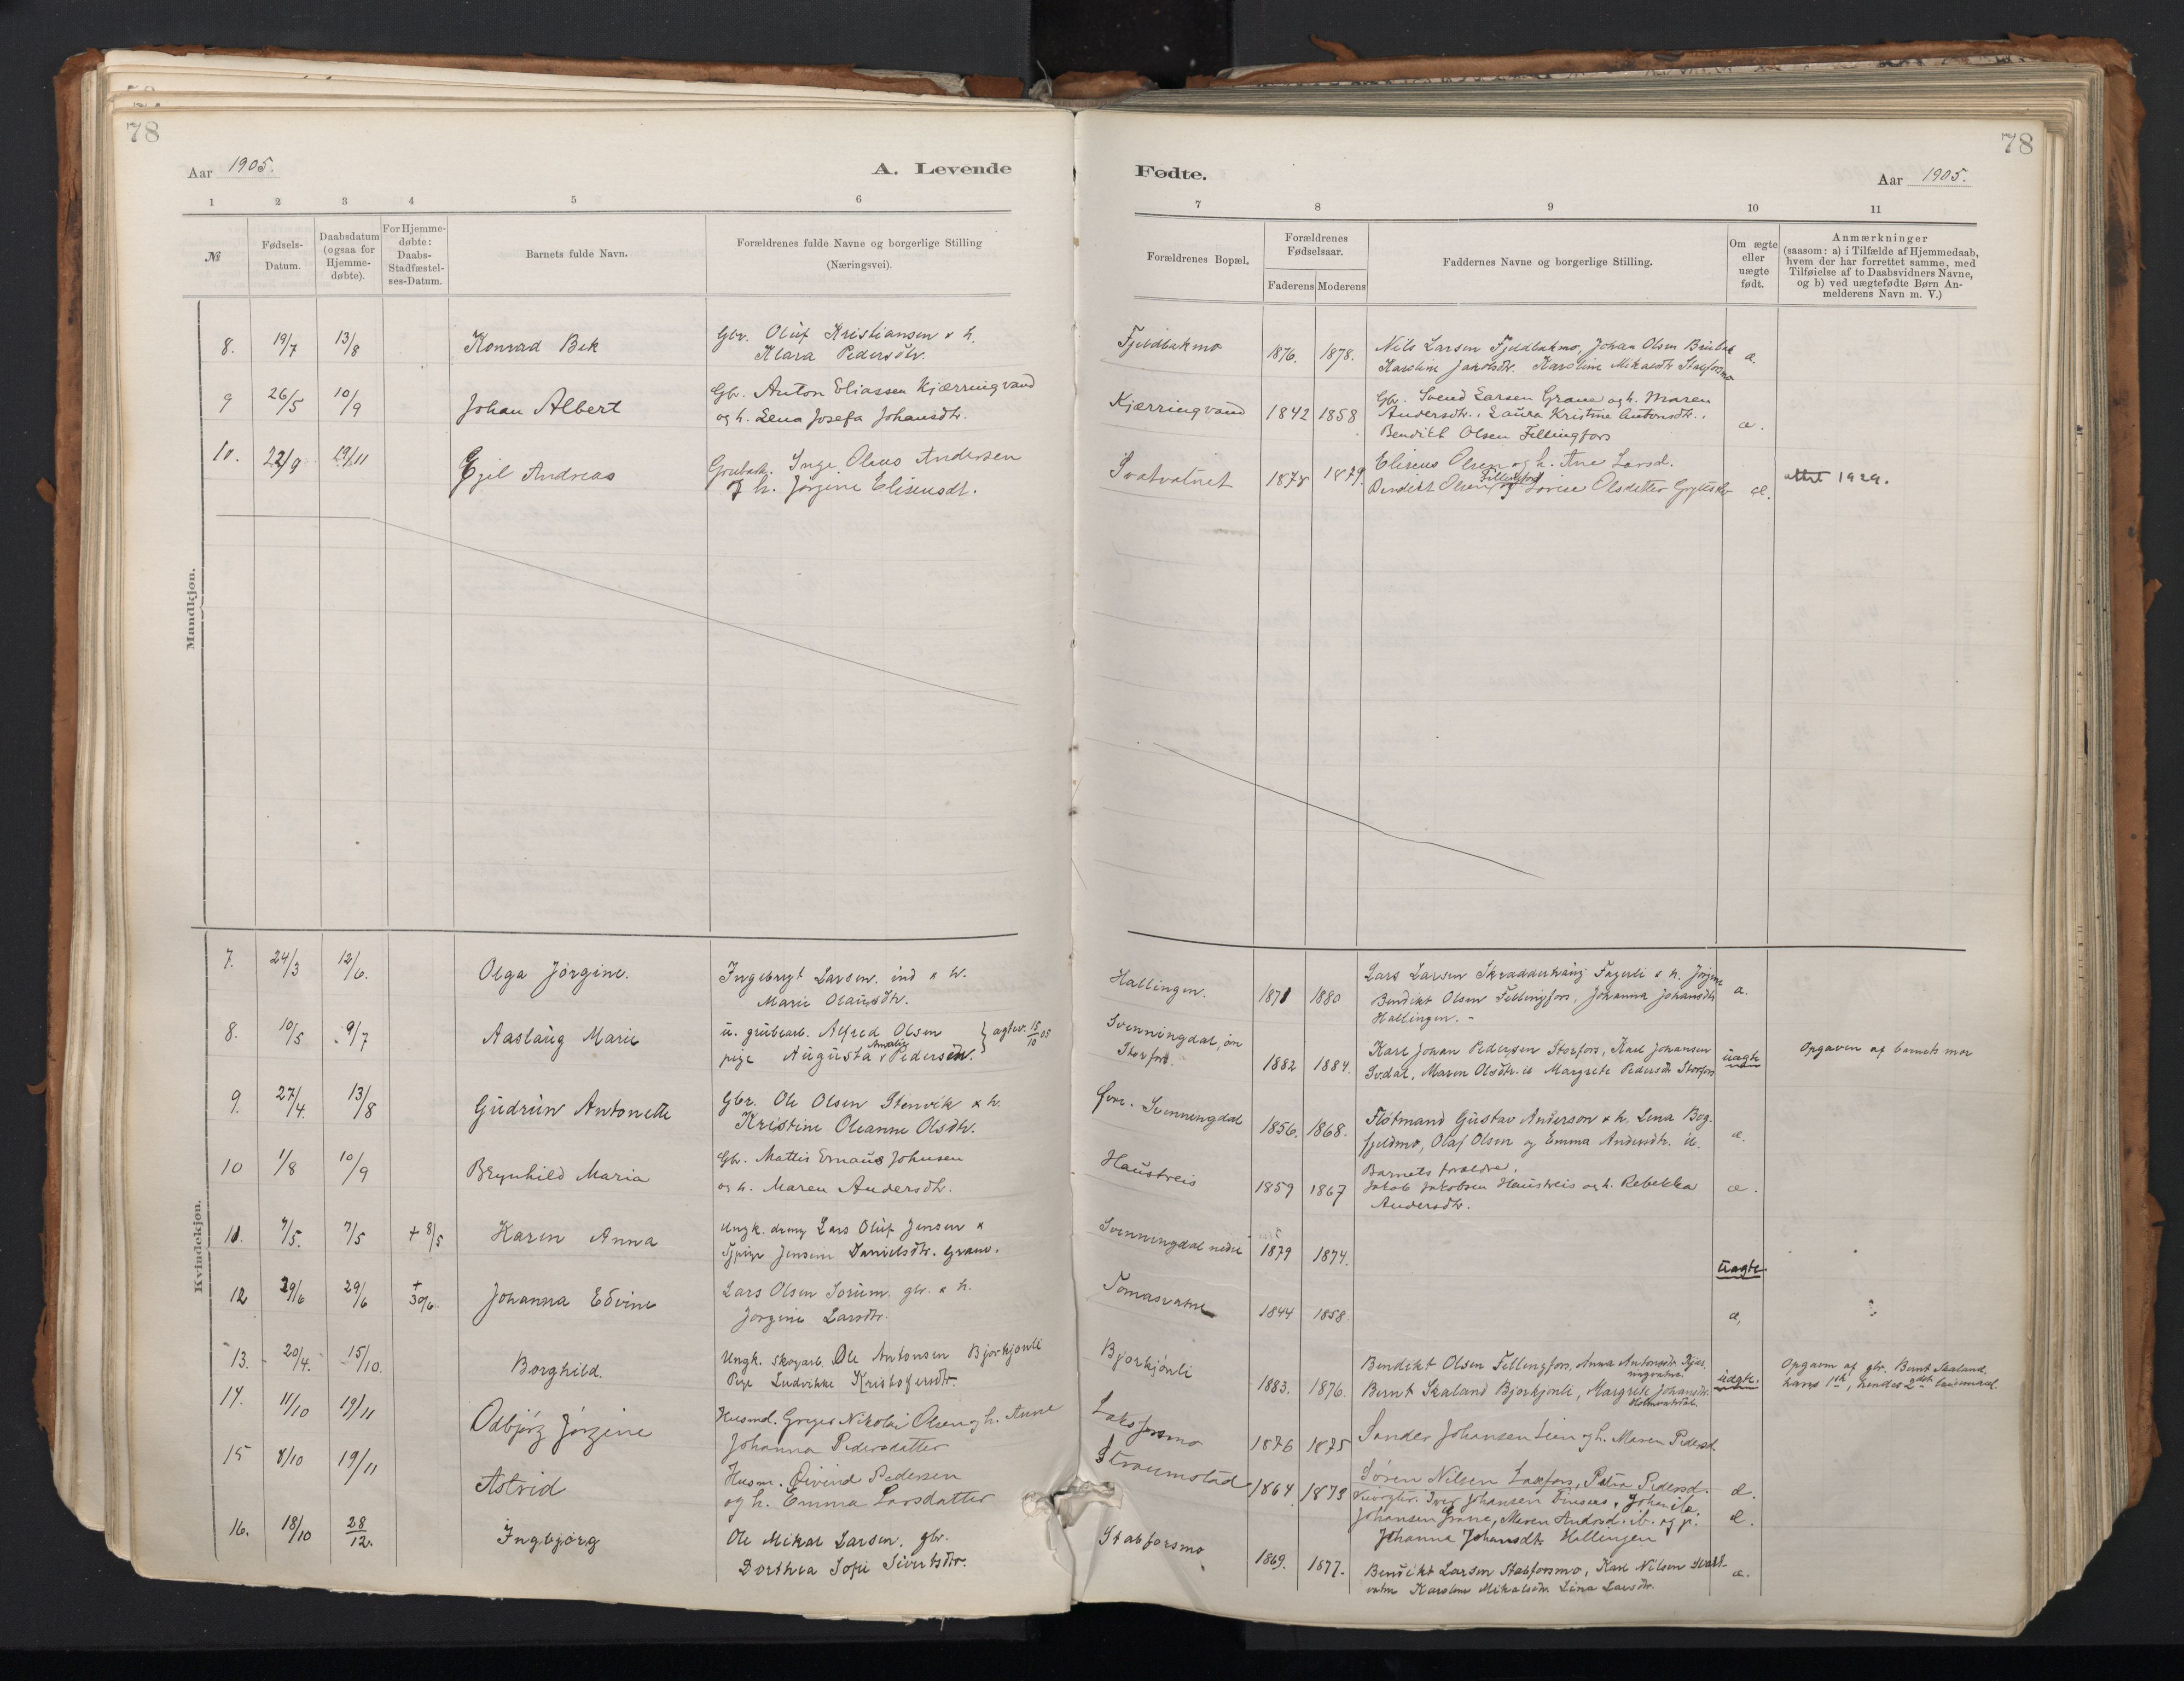 78
78
Aar 1905.
A. Levende
Fødte.
Aar 1905.
1 2 3 4 5 6
7 8 9 10 11
№
Fødsels-
Datum.
Daabsdatum
(ogsaa for
Hjemme-
døbte).
For Hjemme-
døbte:
Daabs-
Stadfæstel-
ses-Datum.
Barnets fulde Navn.
Forældrenes fulde Navne og borgerlige Stilling
(Næringsvei).
Forældrenes Bopæl.
Forældrenes
Fødselsaar.
Faderens Moderens
Faddernes Navne og borgerlige Stilling.
Om ægte
eller
uægte
født.
Anmærkninger
(saasom: a) i Tilfælde af Hjemmedaab,
hvem der har forrettet samme, med
Tilføielse af to Daabsvidners Navne,
og b) ved uægtefødte Børn An-
melderens Navn m. V.)
Mandkjøn.
8. 19/7 13/8 Konrad Bek Gbr. Oluf Kristiansen & h.
Klara Pedersdtr.
Fjeldbakmo 1876. 1878. Nils Larsen Fjeldbakmo, Johan Olsen
Karoline Jakobsdtr. Karoline Mikalsdtr Stabforsmo æ.
9 26/5 10/9 Johan Albert Gbr. Anton Eliassen Kjærringvand
og h. Lena Josefa Johansdtr.
Kjærringvand 1842 1858 Gbr. Svend Larsen Grane og h. Maren
Andersdtr., Laura Kristine Antonsdtr.,
Bendikt Olsen Fellingfors æ.
10. 22/9 19/11 Egil Andreas Grubearb. Inge Olaus Andersen
og h. Jørgine Eliseusdt.
Svatvatnet 1878 1879. Eliseus Olsen og h. Ane Larsd.
Bendikt Olsen Fellingfors og Lovise Olsdatter æ. attest 1929.
Kvindekjøn.
7. 24/3 12/6. Olga Jørgine. Ingebrygt Larsen. ind & h.
Marie Olausdtr.
Hallingen. 1871 1880 Lars Larsen Skradderhaug Fagerli & h. Jørgine
Bendikt Olsen Fellingfors, Johanna Johansdtr
Hallingen. - æ.
8. 10/5 9/7 Aaslaug Marie u. grubearb. Alfred Olsen
pige Augusta Amalie Pedersen. } agtev. 15/10 05
Svenningdal, øn
Storfors. 1882 1884. Karl Johan Pedersen Storfors, Karl Johansen
Svdal, Maren Olsdtr. ib Margrete Pedersdtr Storfors uægte Opgaven af barnets mor
9. 27/4. 13/8 Gudrun Antonette Gbr. Ole Olsen Stenvik & h.
Kristine Oleanne Olsdtr.
Øvre. Svenningdal 1856. 1868. Fløtmand Gustav Anderson & h. Lena Bog-
fjeldmo, Olaf Olsen og Emma Andersdtr. ib. æ.
10 1/8 10/9 Brynhild Maria Gbr. Mattis Emaus Johnsen
og h. Maren Andersdtr.
Haustreis 1859 1867 Barnets forældre.
Jakob Jakobsen Haustreis og h. Rebekka
Andersdtr. æ.
11. 7/5. 7/5 + 8/5 Karen Anna Ungk. dreng Lars Oluf Jensen &
Tjpige Jensine Danielsdtr. Grane.
Svenningdal nedre 1879 1874. uægte.
12 29/6 29/6 + 30/6. Johanna Edvine Lars Olsen Sorum. gbr. & h.
Jørgine Larsdtr.
Tomasvatne 1844 1858. æ,
13. 20/4. 15/10. Borghild. Ungk. skogarb. Ole Antonsen Bjorkjonli
Pige Ludvikke Kristofersdtr.
Bjorkjönli 1883. 1876. Bendikt Olsen Fellingfors, Anna Antonsdtr. Kjær-
ringvatne.
Bernt Skaland Bjorkjonli, Margrete Johansdtr.
uægte. Opgaven af gbr. Bernt Skaland,
hans 1ste, hendes 2det leiermaal.
14. 11/10 19/11 Odbjørg Jørgine Husmd. Greger Nikolai Olsen og h. Anne
Johanna Pedersdatter
Laksforsmo 1876 1875 Sander Johansen Lien og h. Maren Pedersd.
Søren Nilsen Laxfors, Petra Pedersd. æ.
15 8/10 19/11 Astrid Husm. Øivind Pedersen
og h. Emma Larsdatter
Straumstad 1864 1873 Iver Johansen
Johansen Grane, Maren Andersd. ib. og pi.
Johanna Johansdt. Hallingen æ.
16. 18/10 28/12. Ingbjørg Ole Mikal Larsen. gbr.
Dorthea Sofie Sivertsdtr.
Stabforsmo 1869. 1877. Bendikt Larsen Stabforsmo, Karl Nilsen Svart-
vatne Karoline Mikalsdtr. Lina Larsdtr. æ.